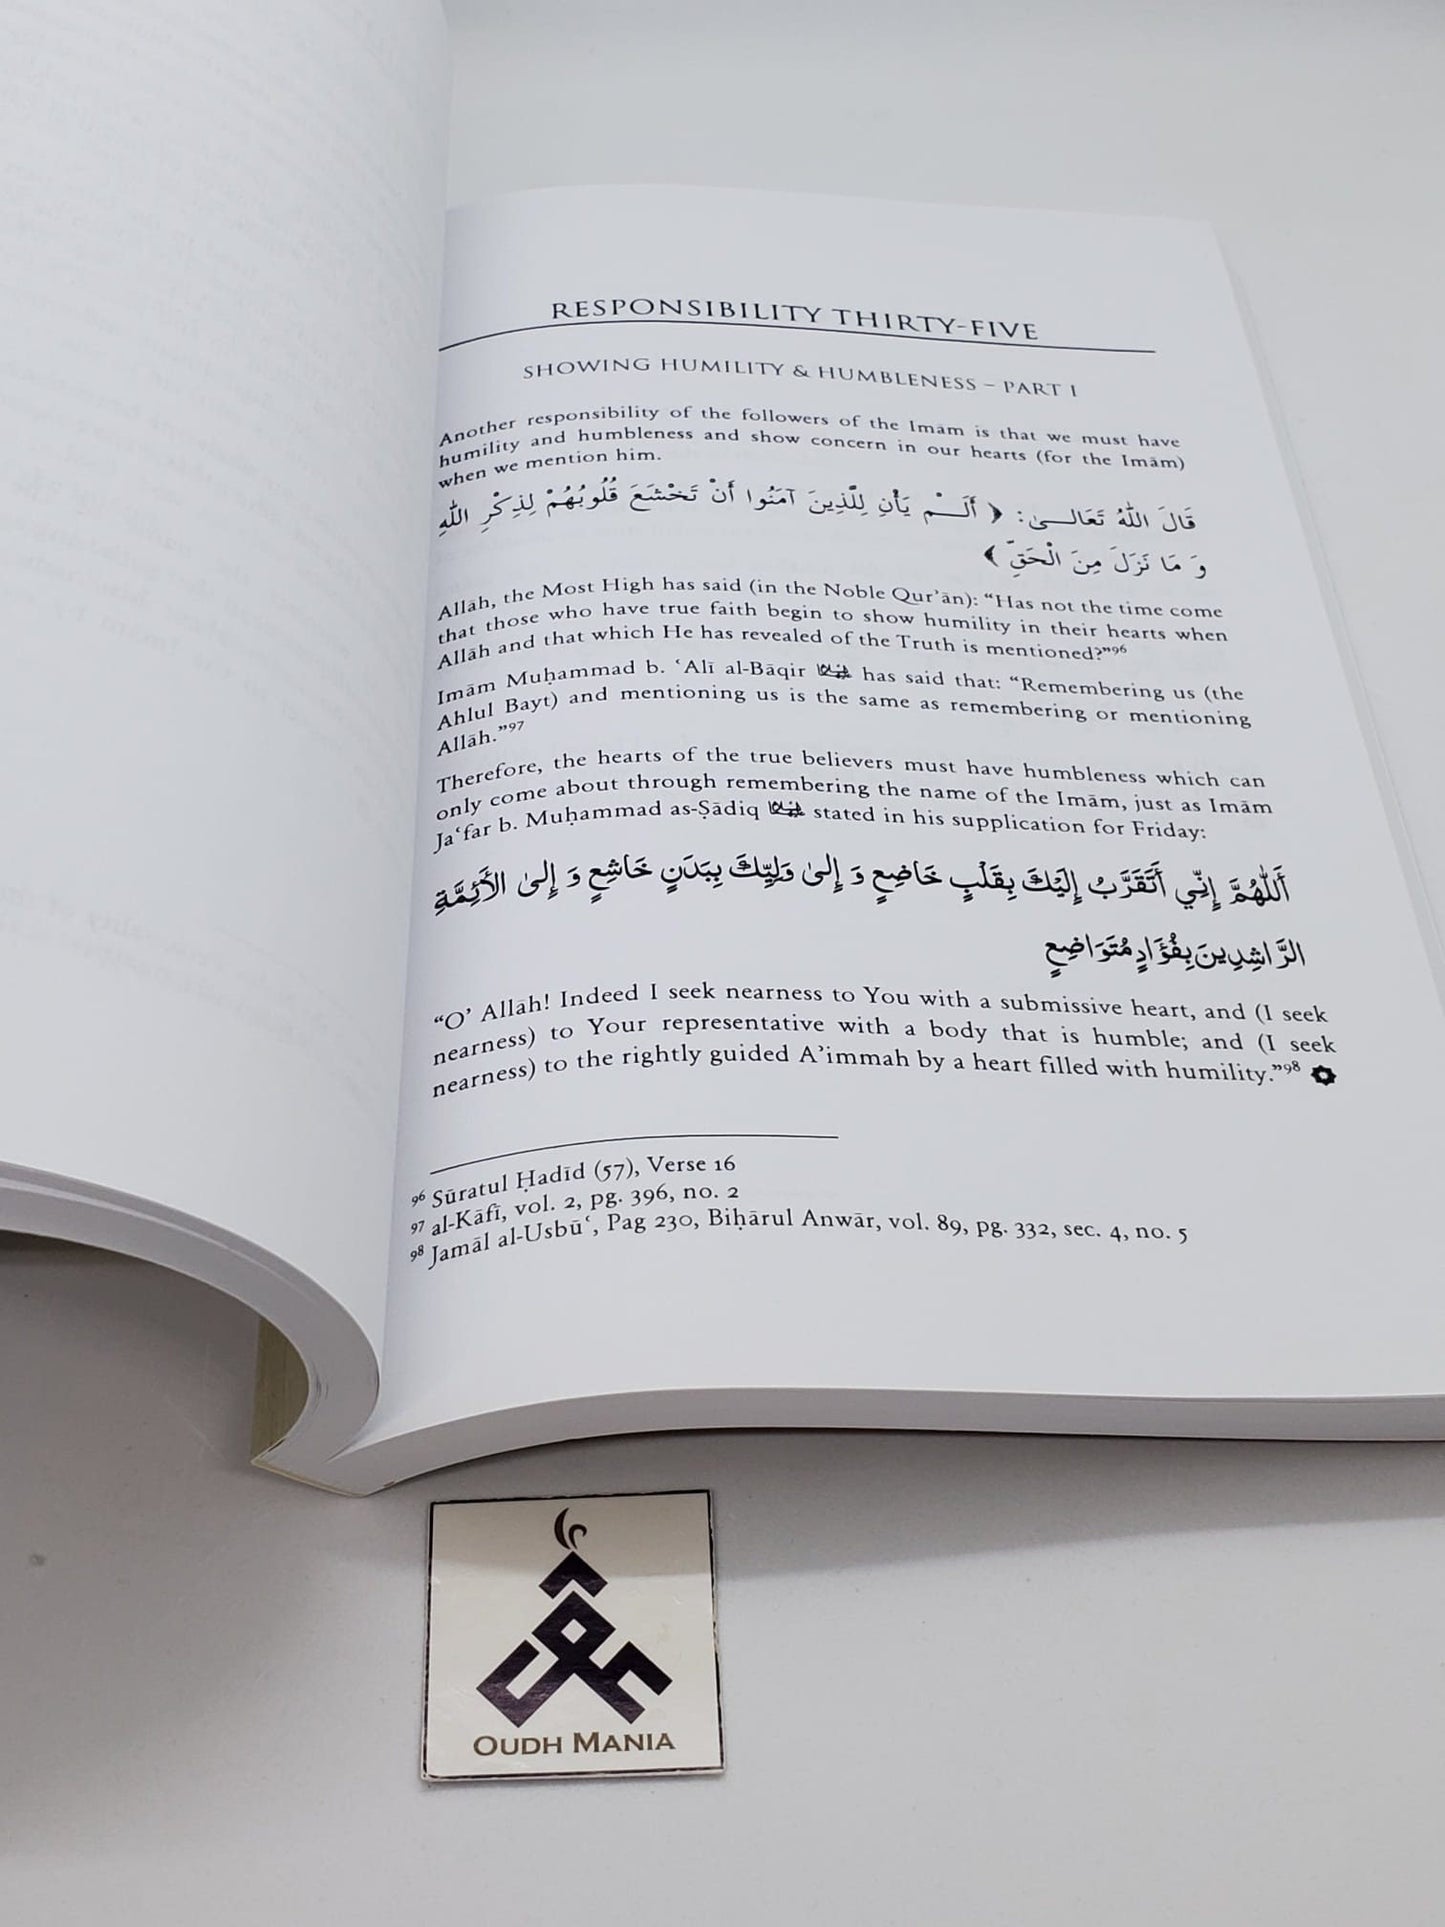 RESPONSIBILITY THIRTY-FIVE
SHOWING HUMILITY & HUMBLENESS – PART I
Another responsibility of the followers of the Imām is that we must have
humility and humbleness and show concern in our hearts (for the Imām)
when we mention him.
قَالَ اللّٰهُ تَعَالـــىٰ: ﴿ أَلَـــمْ يَأْنِ لِلَّذِينَ آمَنُوا أَنْ تَخْشَعَ قُلُوبُهُمْ لِذِكْرِ اللّٰهِ
وَ مَا نَزَلَ مِنَ الْحَقِّ ﴾
Allāh, the Most High has said (in the Noble Qur’ān): “Has not the time come
that those who have true faith begin to show humility in their hearts when
Allāh and that which He has revealed of the Truth is mentioned?”⁹⁶
Imām Muḥammad b. ʿAlī al-Bāqir has said that: “Remembering us (the
Ahlul Bayt) and mentioning us is the same as remembering or mentioning
Allāh.”⁹⁷
Therefore, the hearts of the true believers must have humbleness which can
only come about through remembering the name of the Imām, just as Imām
Jaʿfar b. Muḥammad as-Ṣādiq stated in his supplication for Friday:
أَللّٰهُمَّ إِنِّي أَتَقَرَّبُ إِلَيْكَ بِقَلْبٍ خَاضِعٍ وَ إِلىٰ وَلِيِّكَ بِبَدَنٍ خَاشِعٍ وَ إِلىٰ الأَئِمَّةِ
الرَّاشِدِينَ بِفُؤَادٍ مُتَوَاضِعٍ
“O’ Allāh! Indeed I seek nearness to You with a submissive heart, and (I seek
nearness) to Your representative with a body that is humble; and (I seek
nearness) to the rightly guided A’immah by a heart filled with humility.”⁹⁸
⁹⁶ Sūratul Ḥadīd (57), Verse 16
⁹⁷ al-Kāfī, vol. 2, pg. 396, no. 2
⁹⁸ Jamāl al-Usbūʿ, Pag 230, Biḥārul Anwār, vol. 89, pg. 332, sec. 4, no. 5
OUDH MANIA